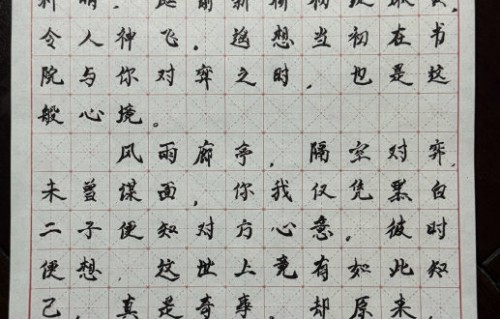 前新
令人神飞。遥想当初在书
院与你对弈之时,也是这
般心境。
风雨廊亭,隔空对弈,
未曾谋面,你我仅凭黑白
二子便知对方心意。彼时
便想,这世上竟有如此知
己,真是奇事。却原来,